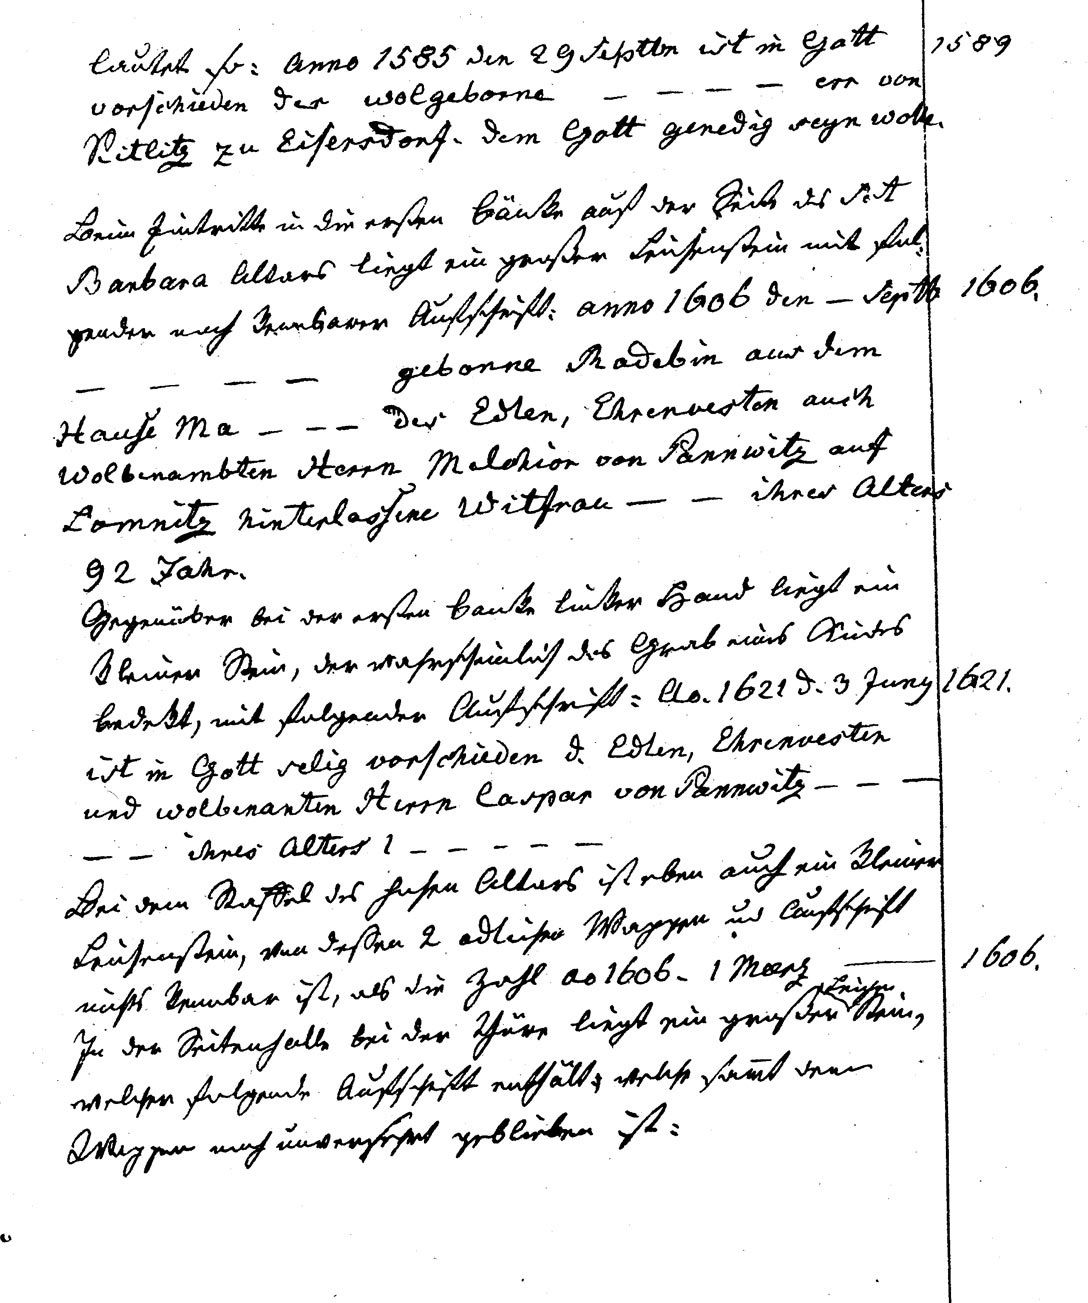 lautet so: Anno 1585 den 29 Septbr ist in Gott 1589
vorschieden der wolgeborne – – – – err von
Kitlitz zu Eisersdorf. dem Gott genedig seyn wolle.
Beim Eintritte in die ersten Bänke auf der Seite des S:t
Barbara Altars liegt ein großer Leichenstein mit fol:
gender noch kennbarer Aufschrift: anno 1606 den – Septb 1606.
– – – – geborne Radebin aus dem
Hause Ma – – – der Edlen, Ehrenvesten auch
wolbenambten Herrn Melchior von Pannwitz auf
Lomnitz hinterlassene Witfrau – – ihres Alters
92 Jahr.
Gegenüber bei der ersten Banke linker Hand liegt ein
kleiner Stein, der wahrscheinlich das Grab eines Kindes
bedekt, mit folgender Aufschrift: Ao. 1621 d. 3 Juny 1621.
ist in Gott selig vorschieden d. Edlen, Ehrenvesten
und wolbenanten Herrn Caspar von Pannwitz – – –
– – ihres Alters 1 – – – – –
Bei dem Staffel des hohen Altars ist eben auch ein kleiner
Leichenstein, von dessen 2 adlichen Wappen und Aufschrift
nichts kennbar ist, als die Zahl ao 1606. 1 Maerz — 1606.
In der Seitenhalle bei der Thüre liegt ein großer Leichen Stein,
welcher folgende Aufschrift enthält, welche samt dem
Wappen noch unversehrt geblieben ist: